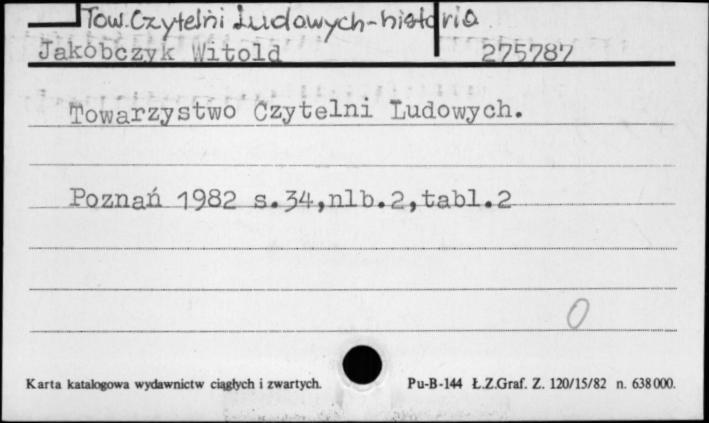 Tow. Czytelni Ludowych - historia
Jakóbczyk Witold 275787
Towarzystwo Czytelni Ludowych.
Poznań 1982 s.34,nlb.2,tabl.2
0
Karta katalogowa wydawnictw ciągłych i zwartych. Pu-B-144 Ł.Z.Graf. Z. 120/15/82 n. 638000.